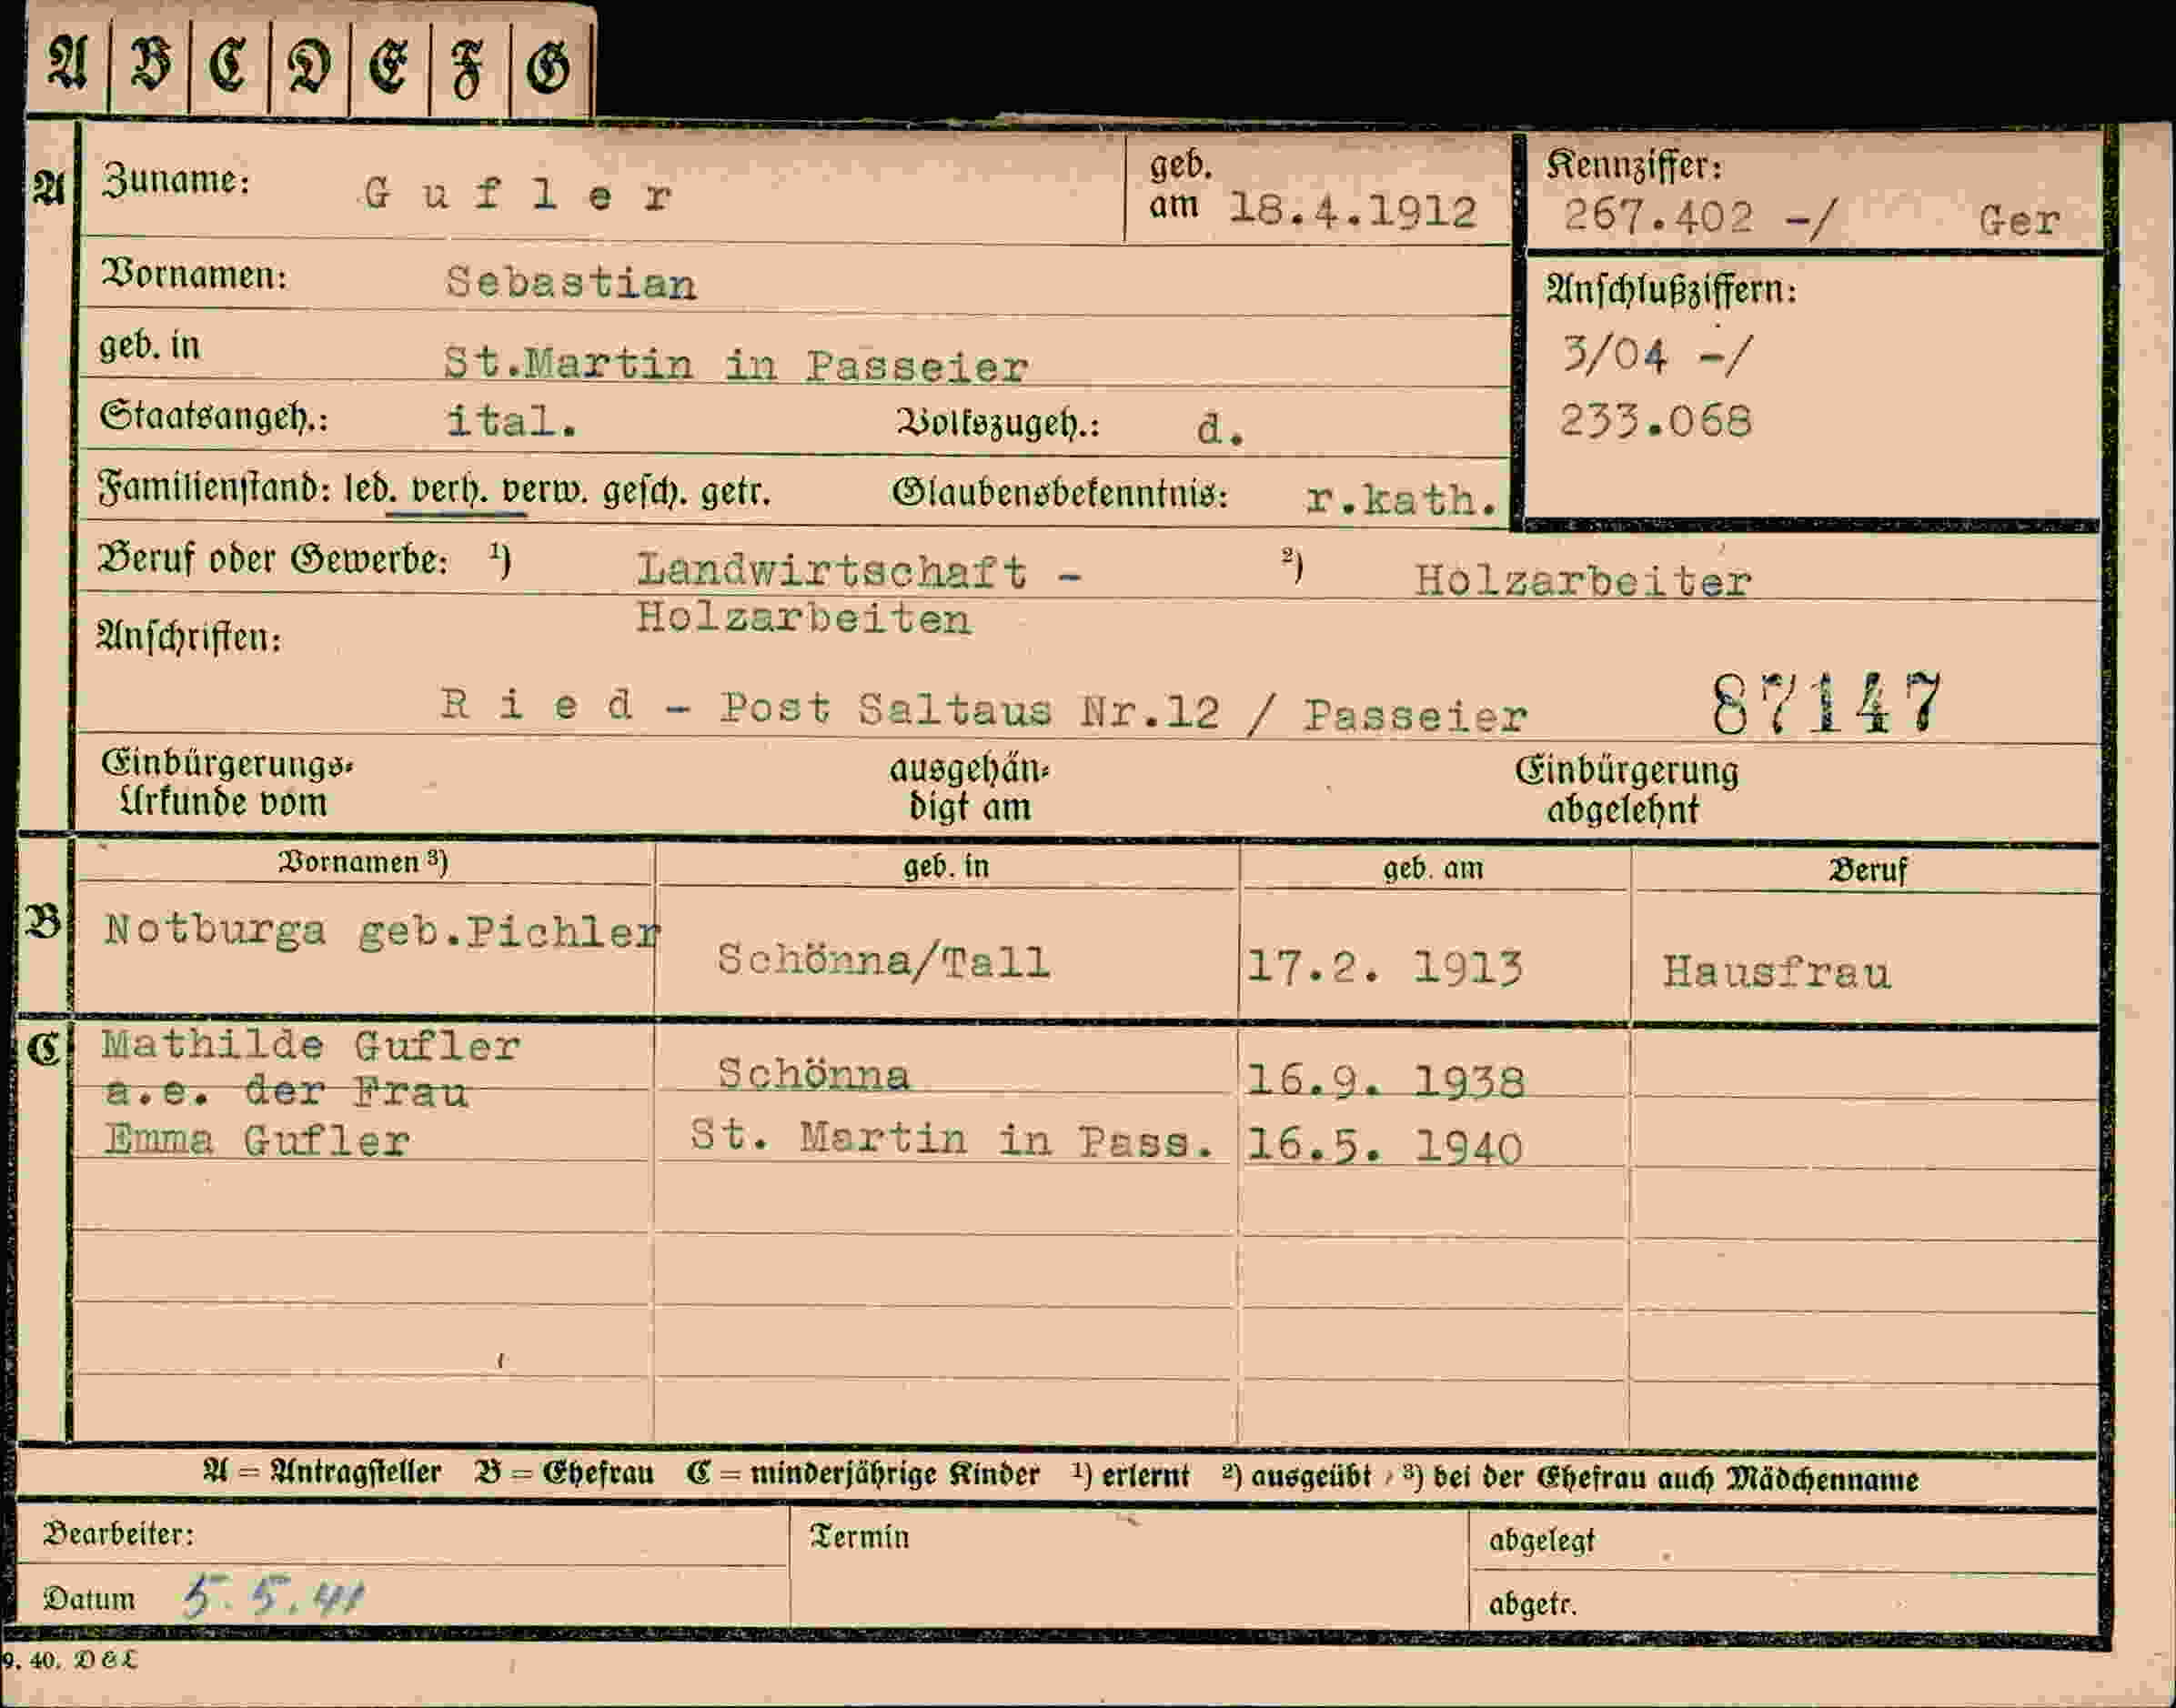 A B C D E F G
A Zuname: G u f l e r geb. am 18.4.1912
Kennziffer:
267.402 -/ Ger
Vornamen: Sebastian
Anschlußziffern:
3/04 -/
233.068
geb. in St.Martin in Passeier
Staatsangeh.: ital. Volkszugeh.: d.
Familienstand: led. verh. verw. gesch. getr. Glaubensbekenntnis: r.kath.
Beruf oder Gewerbe: ¹) Landwirtschaft - ²) Holzarbeiter
Holzarbeiten
Anschriften:
R i e d - Post Saltaus Nr.12 / Passeier 87147
Einbürgerungs- ausgehän- Einbürgerung
Urkunde vom digt am abgelehnt
Vornamen ³) geb. in geb. am Beruf
B Notburga geb.Pichler Schönna/Tall 17.2. 1913 Hausfrau
C Mathilde Gufler
a.e. der Frau Schönna 16.9. 1938
Emma Gufler St. Martin in Pass. 16.5. 1940
A = Antragsteller B = Ehefrau C = minderjährige Kinder ¹) erlernt ²) ausgeübt ³) bei der Ehefrau auch Mädchenname
Bearbeiter: Termin abgelegt
Datum 5.5.41 abgetr.
9. 40. D&L